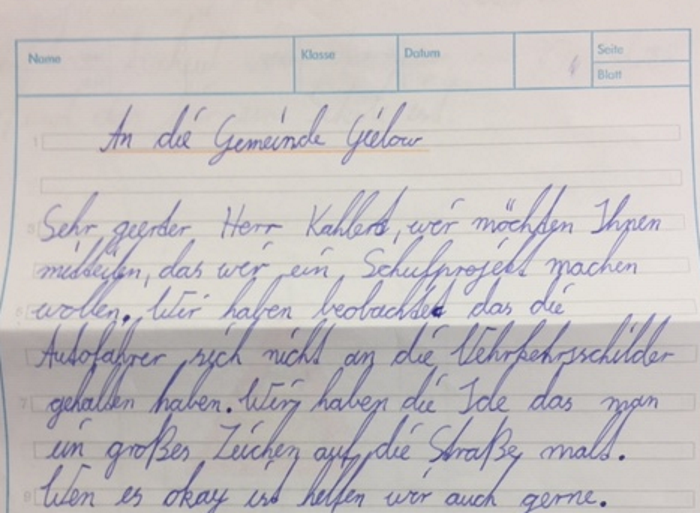 Name Klasse Datum Seite
Blatt
1 An die Gemeinde Gielow
3 Sehr geerder Herr Kahlert, wir möchten Ihnen
mitteilen, das wir ein Schulprojekt machen
wollen. Wir haben beobachtet das die
Autofahrer sich nicht an die Vehrkehrsschilder
7 gehalten haben. Wir haben die Ide das man
ein großes Zeichen auf die Straße malt.
9 Wen es okay ist helfen wir auch gerne.